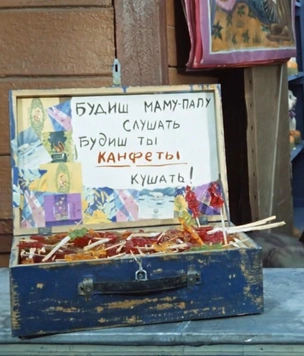 БУДИШ МАМУ-ПАПУ
СЛУШАТЬ
БУДИШ ТЫ
КАНФЕТЫ
КУШАТЬ!